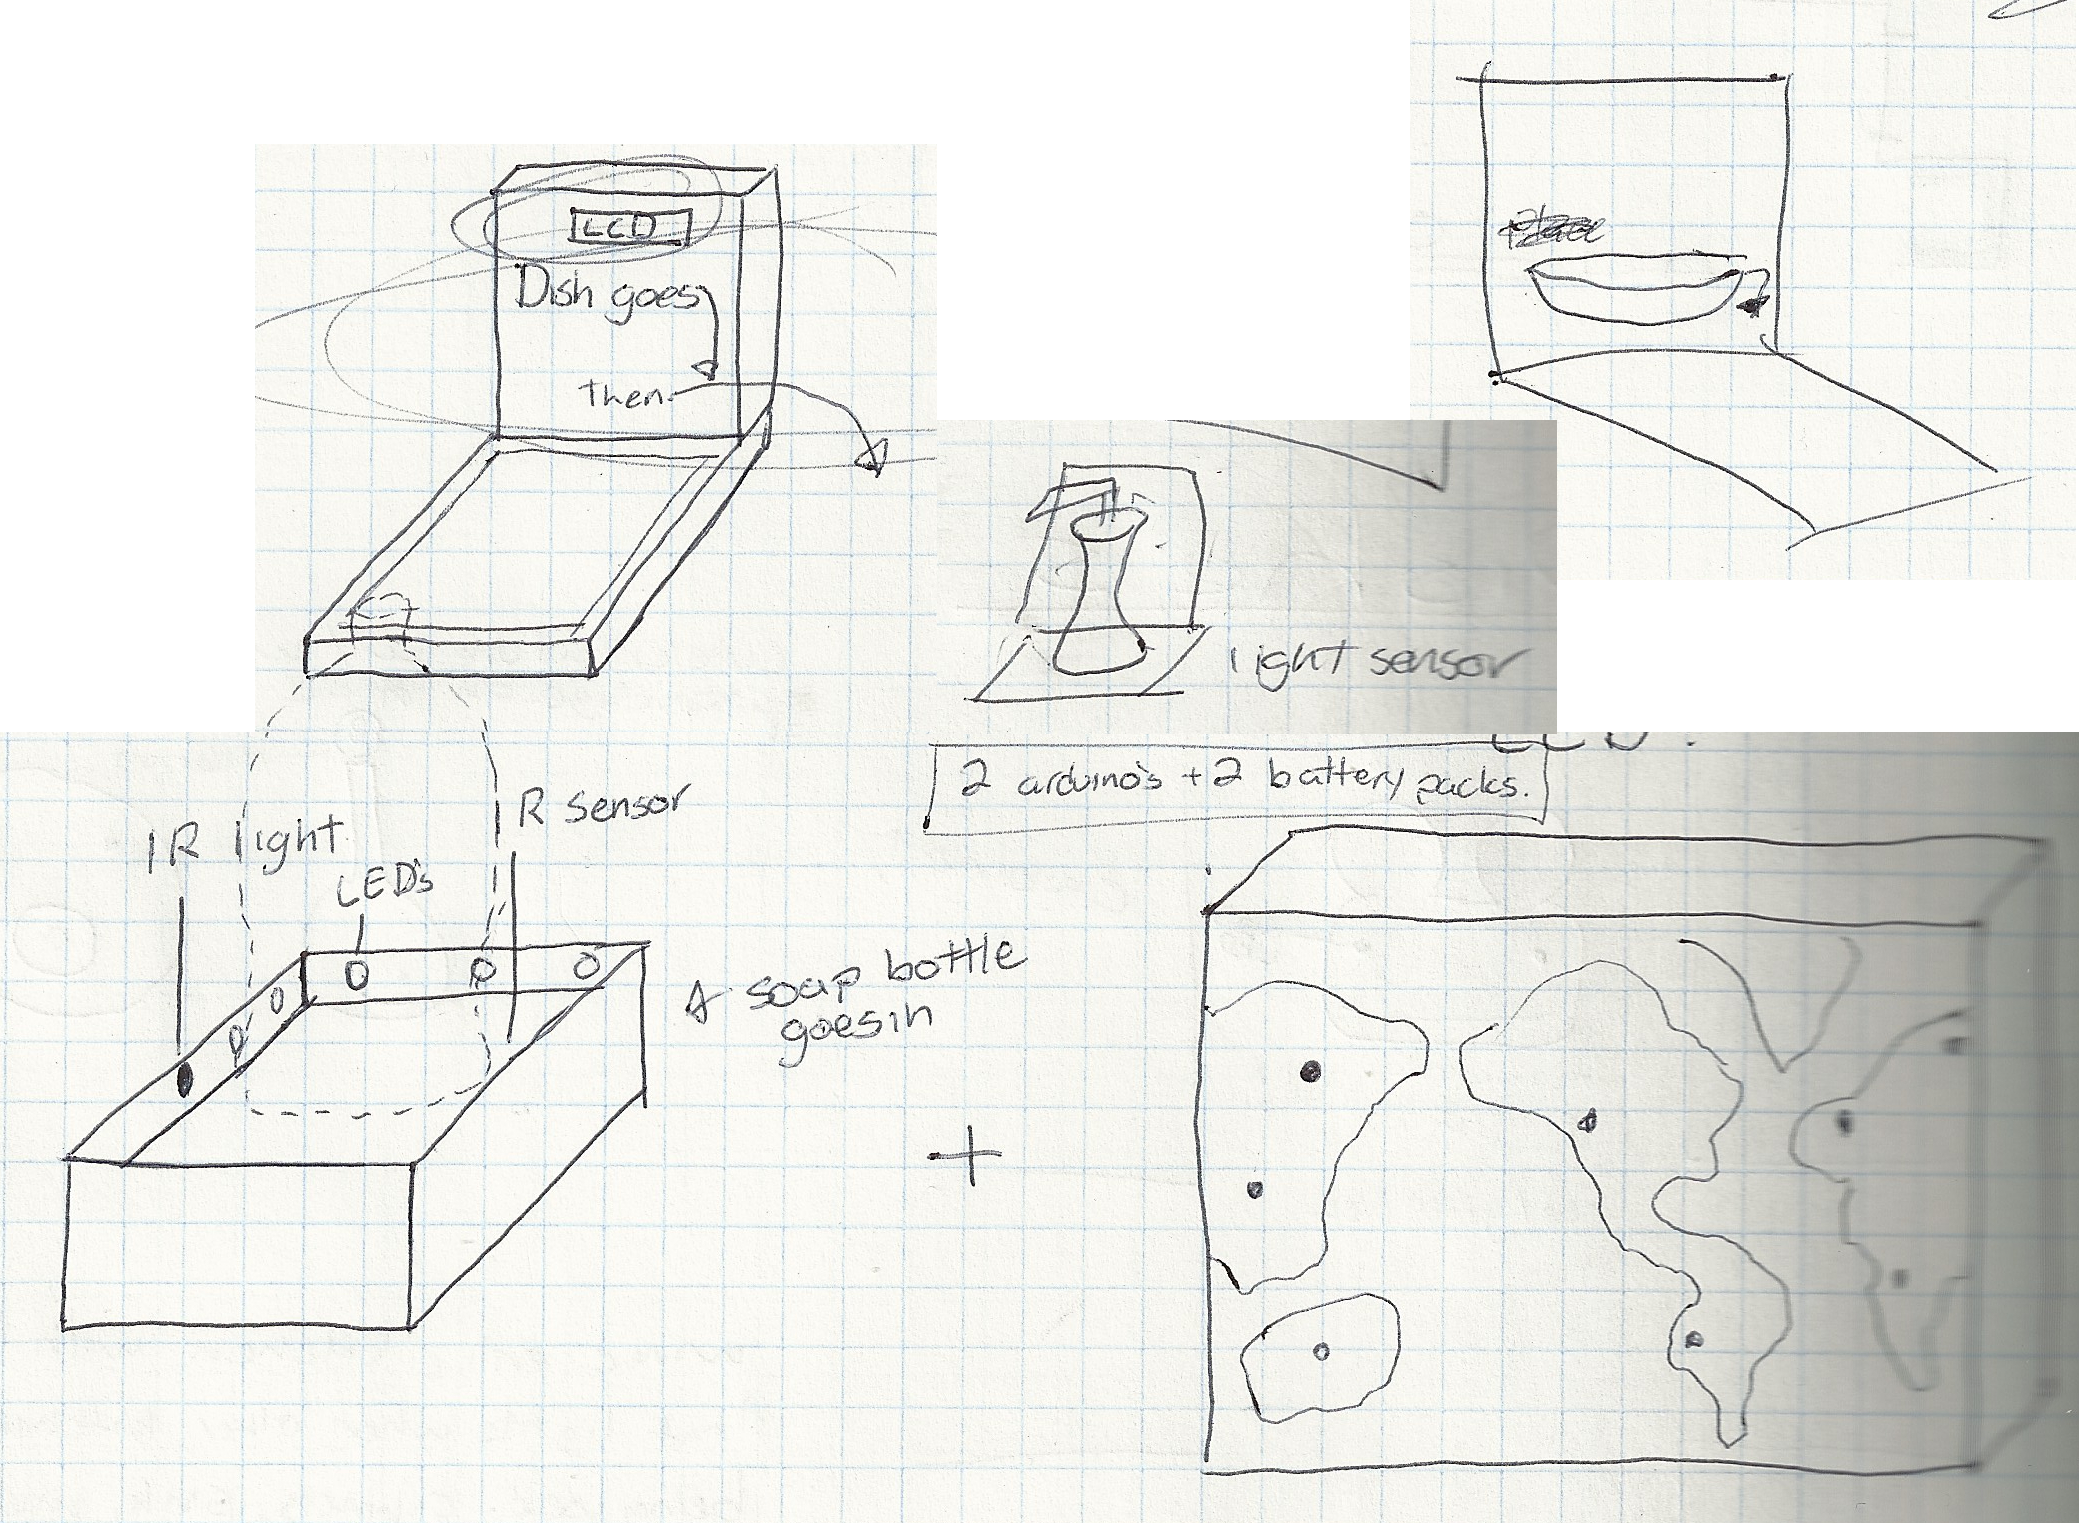 LCD
Dish goes
Then
light sensor
2 arduino's + 2 battery packs.
IR light
R sensor
LED's
soap bottle
goes in
+